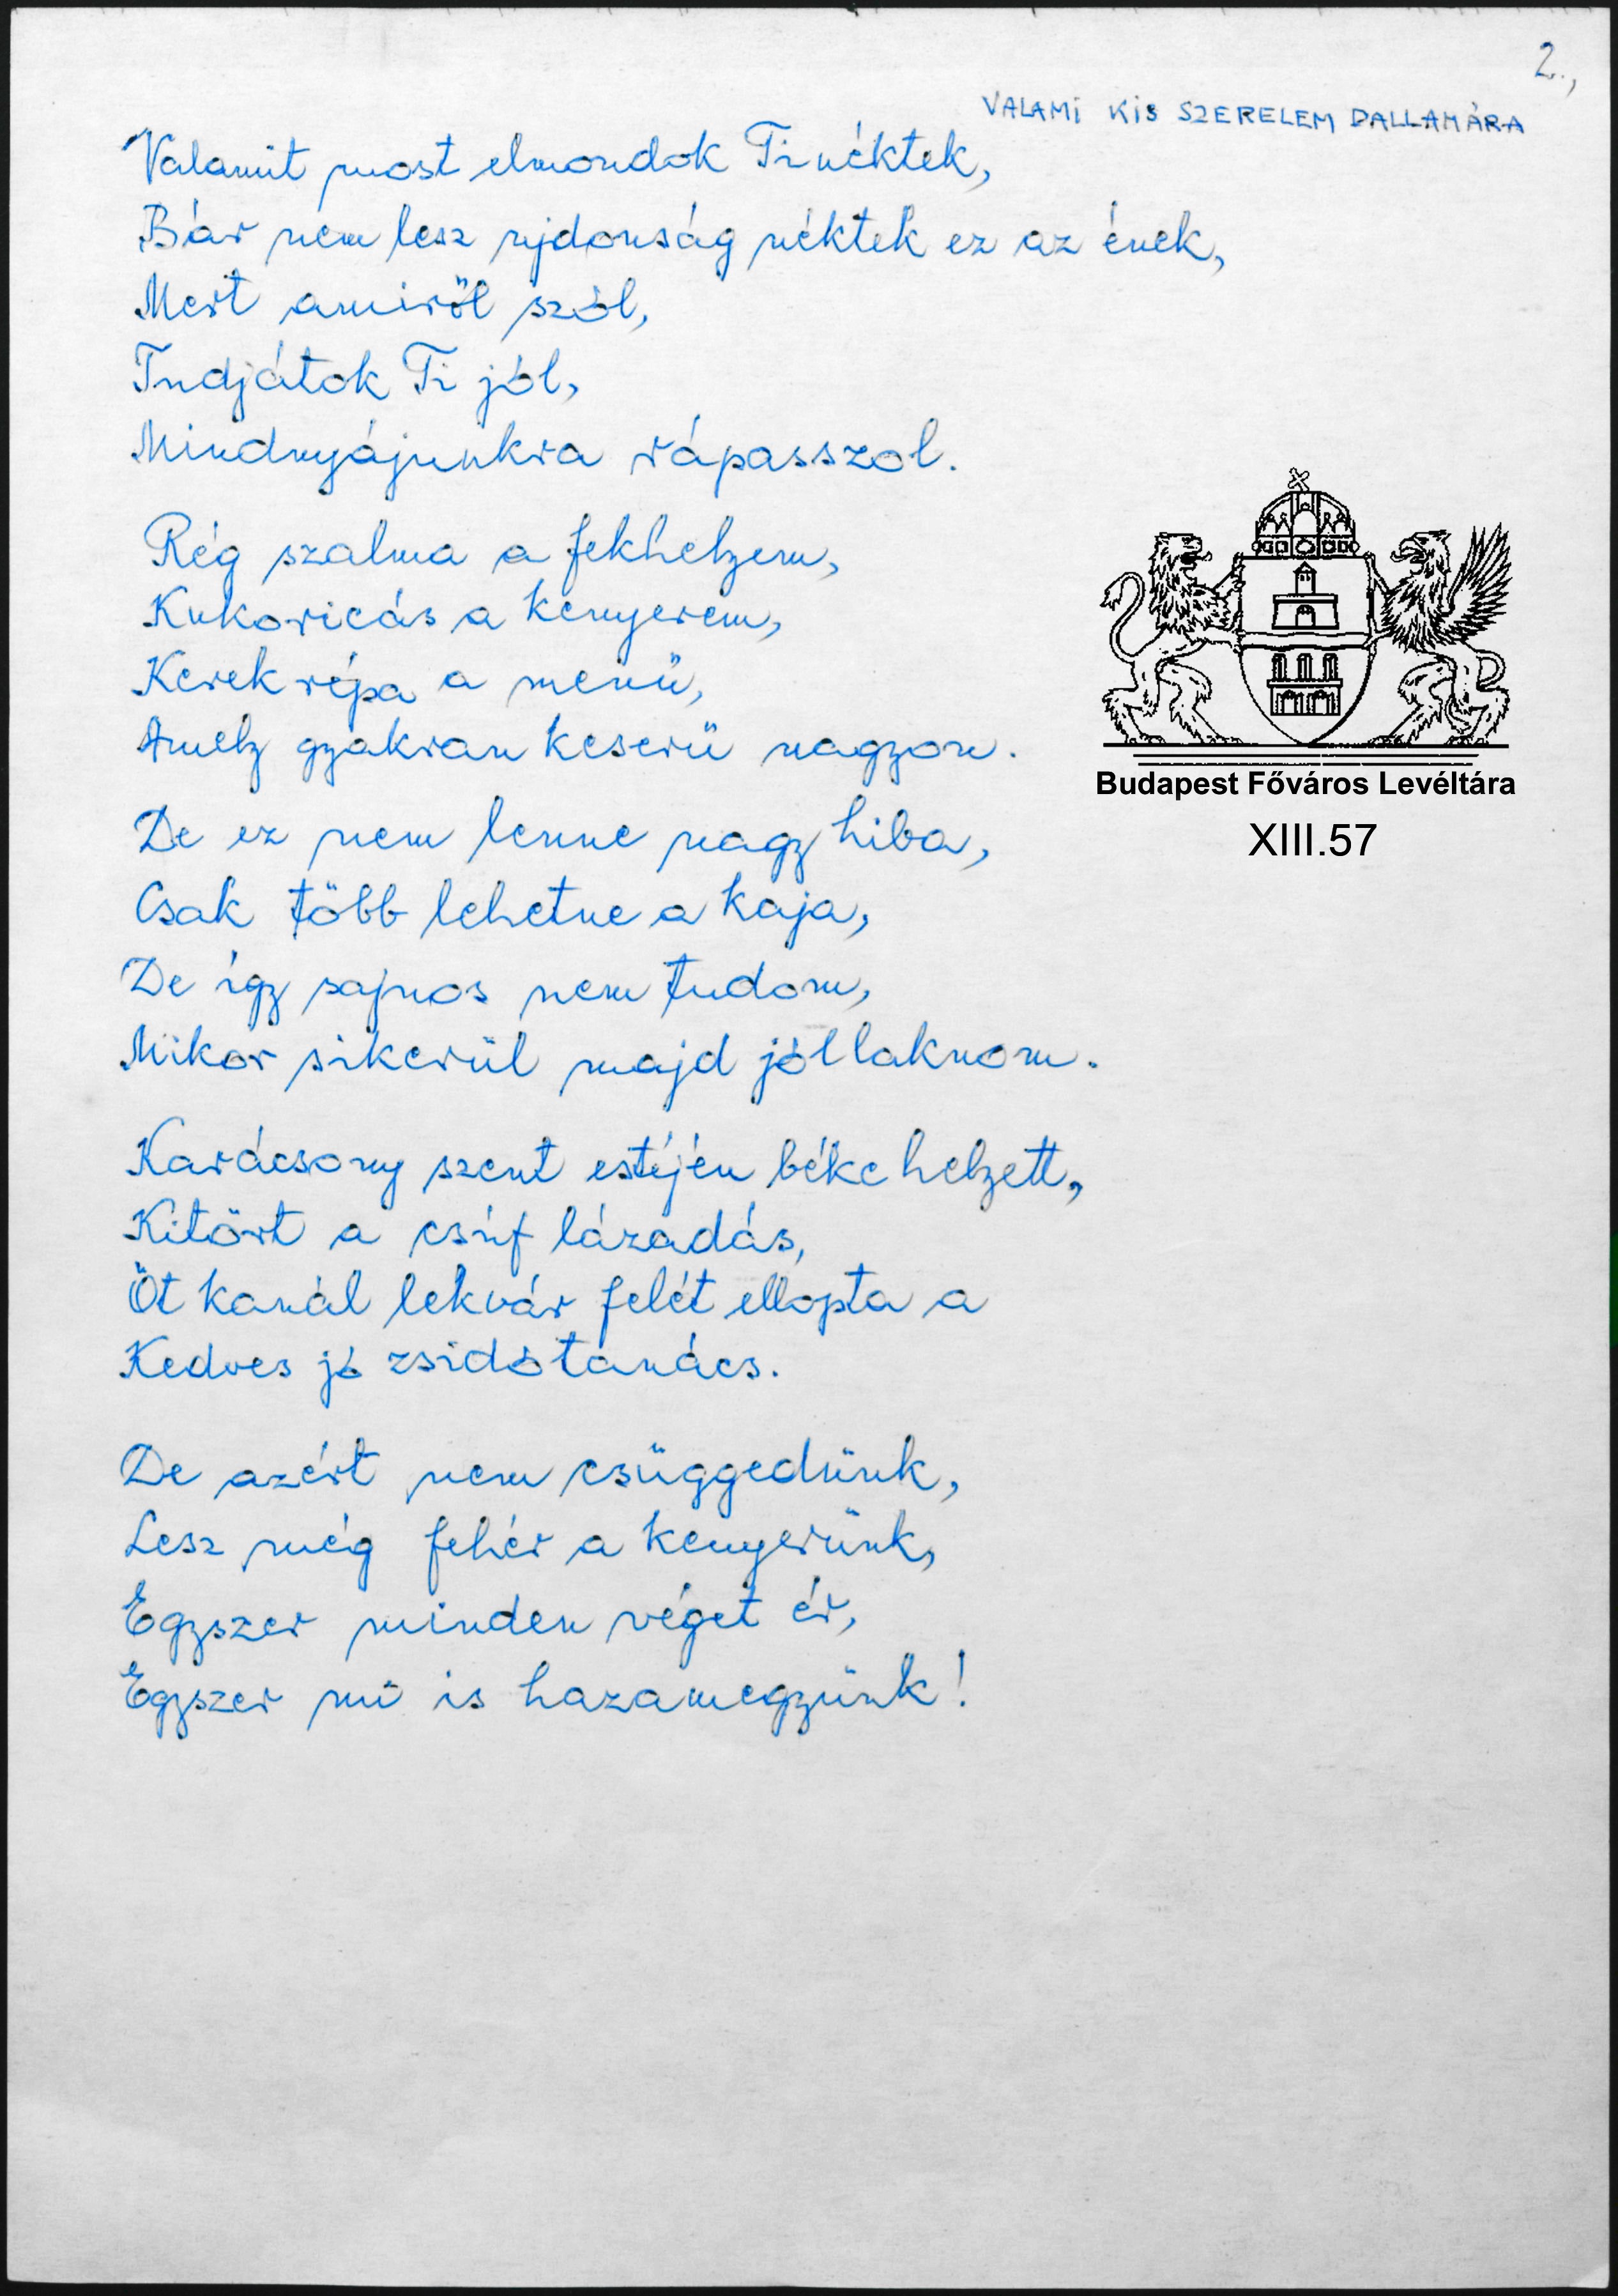 2.,
VALAMI KIS SZERELEM DALLAMÁRA
Valamit most elmondok Ti néktek,
Bár nem lesz ujdonság néktek ez az ének,
Mert amiről szól,
Tudjátok Ti jól,
Mindnyájunkra rápasszol.
Rég szalma a fekhelyem,
Kukoricás a kenyerem,
Kerekrépa a menü,
Amely gyakran keserü nagyon.
De ez nem lenne nagy hiba,
Csak több lehetne a kaja,
De így sajnos nem tudom,
Mikor sikerül majd jóllaknom.
Karácsony szent estéjén béke helyett,
Kitört a csúf lázadás,
Öt kanál lekvár felét ellopta a
Kedves jó zsidótanács.
De azért nem csüggedünk,
Lesz még fehér a kenyerünk,
Egyszer minden véget ér,
Egyszer mi is hazamegyünk!
Budapest Főváros Levéltára
XIII.57